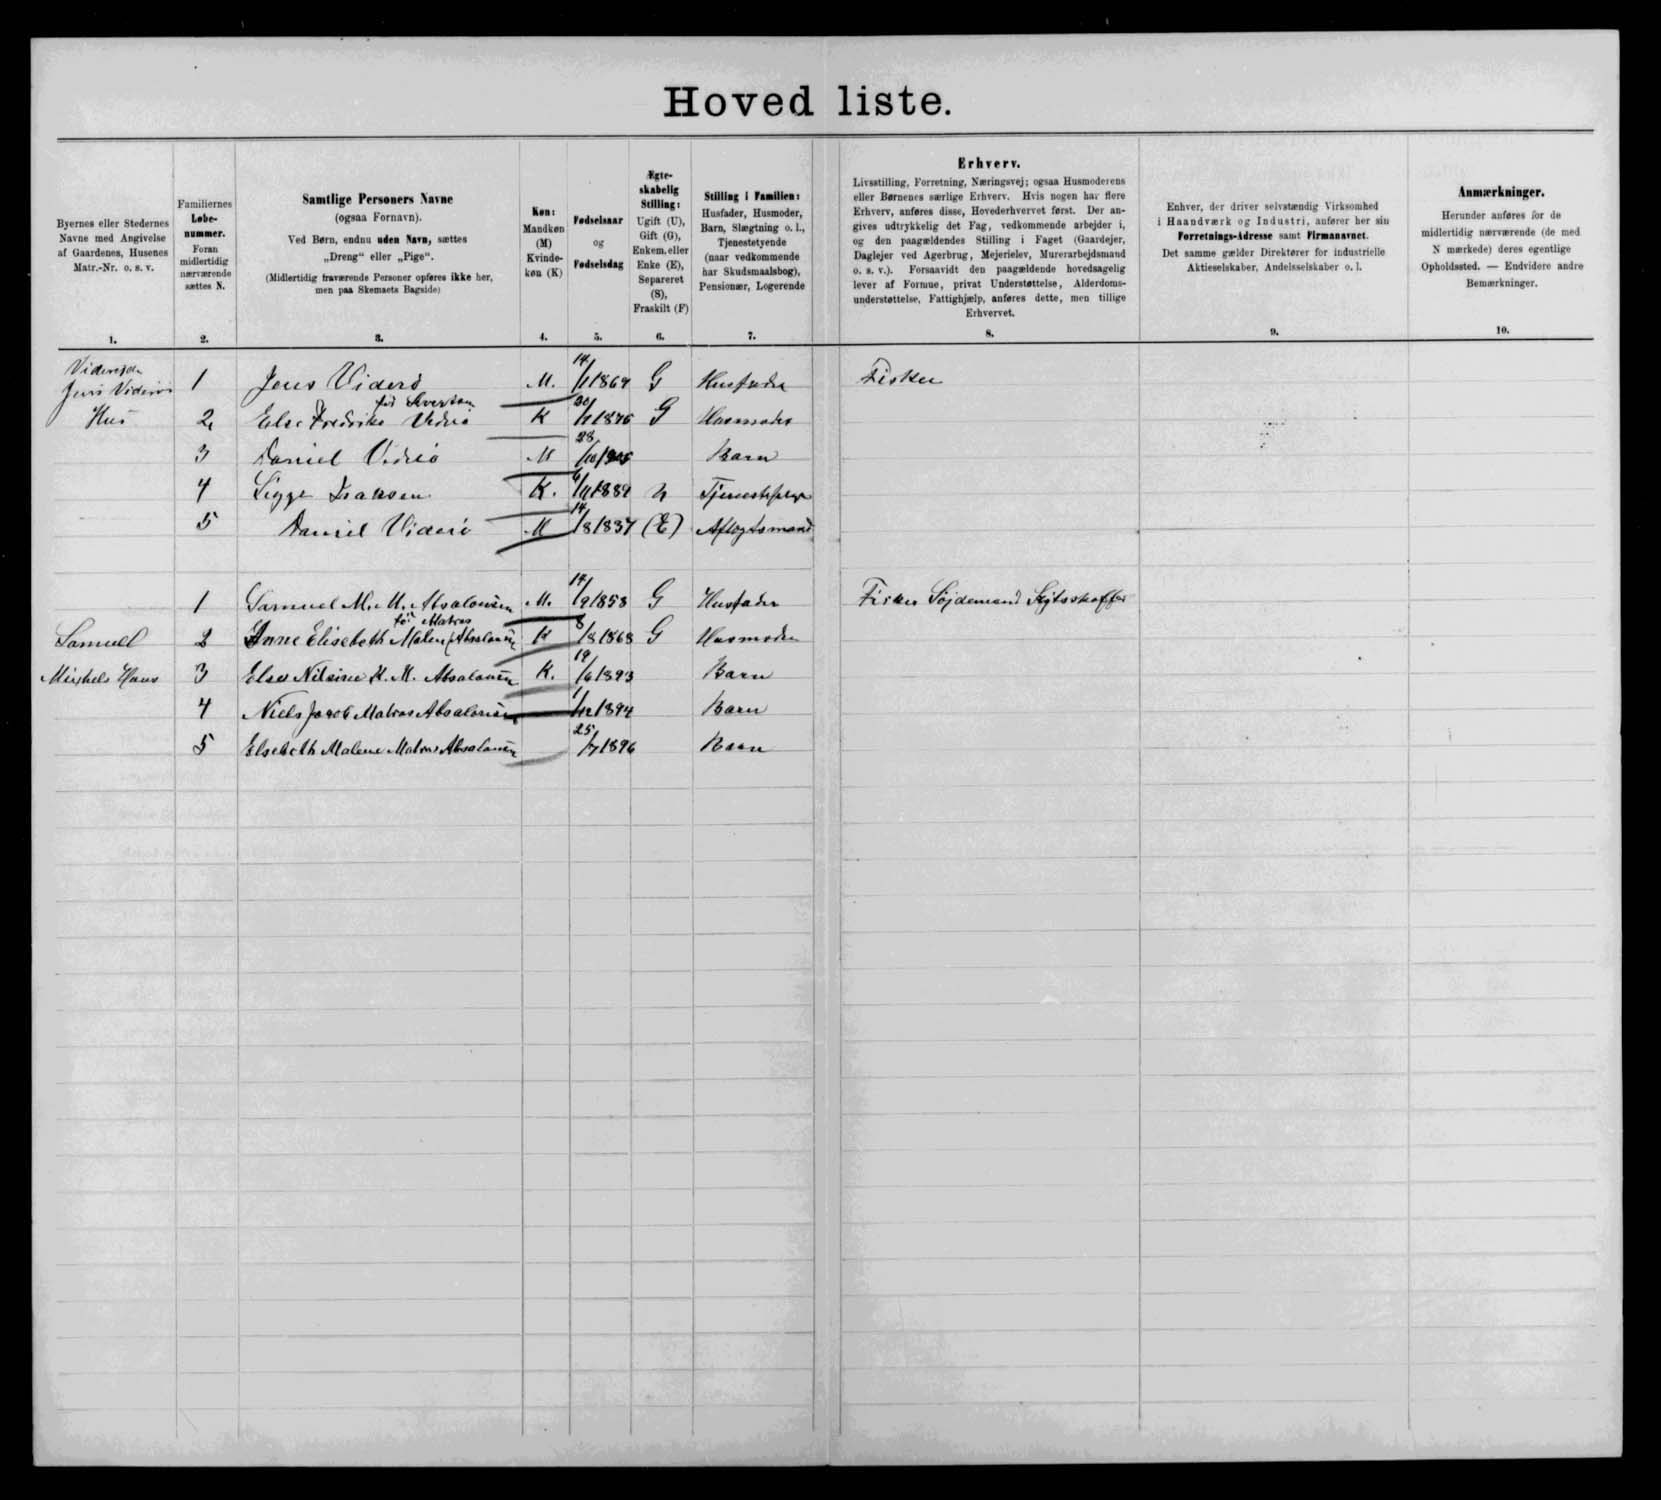 Hoved liste.
Byernes eller Stedernes
Navne med Angivelse
af Gaardenes, Husenes
Matr.-Nr. o. s. v.
1.
Familiernes
Løbe-
nummer.
Foran
midlertidig
nærværende
sættes N.
2.
Samtlige Personers Navne
(ogsaa Fornavn).
Ved Børn, endnu uden Navn, sættes
„Dreng“ eller „Pige“.
(Midlertidig fraværende Personer opføres ikke her,
men paa Skemaets Bagside)
3.
Køn:
Mandkøn
(M)
Kvinde-
køn (K)
4.
Fødselsaar
og
Fødselsdag
5.
Ægte-
skabelig
Stilling:
Ugift (U),
Gift (G),
Enkem. eller
Enke (E),
Separeret
(S),
Fraskilt (F)
6.
Stilling i Familien:
Husfader, Husmoder,
Barn, Slægtning o. l.,
Tjenestetyende
(naar vedkommende
har Skudsmaalsbog),
Pensionær, Logerende
7.
Erhverv.
Livsstilling, Forretning, Næringsvej; ogsaa Husmoderens
eller Børnenes særlige Erhverv. Hvis nogen har flere
Erhverv, anføres disse, Hovederhvervet først. Der an-
gives udtrykkelig det Fag, vedkommende arbejder i,
og den paagældendes Stilling i Faget (Gaardejer,
Daglejer ved Agerbrug, Mejerielev, Murerarbejdsmand
o. s. v.). Forsaavidt den paagældende hovedsagelig
lever af Formue, privat Understøttelse, Alderdoms-
understøttelse, Fattighjælp, anføres dette, men tillige
Erhvervet.
8.
Enhver, der driver selvstændig Virksomhed
i Haandværk og Industri, anfører her sin
Forretnings-Adresse samt Firmanavnet.
Det samme gælder Direktører for industrielle
Aktieselskaber, Andelsselskaber o. l.
9.
Anmærkninger.
Herunder anføres for de
midlertidig nærværende (de med
N mærkede) deres egentlige
Opholdssted. — Endvidere andre
Bemærkninger.
10.
1 Jens Viderö M. 14/1 1869 G Husfader Fisker
Hus 2 Else Fredrike Viderö K 20/1 1876 G Husmoder
3 Daniel Viderö M 28/10 Barn
4 Sigge Isaksen K. 6/11 1889 U
5 Daniel Viderö M 14/8 1837 (E) Aftægtsmand
1 Samuel M. M. Absalonsen M. 14/9 1858 G Husfader Fisker
fö Matras
Samuel 2 Anne Elisebeth Malene Absalonsen K 8/8 1868 G Husmoder
Mikkels Haus 3 Else Nilsine K. M. Absalonsen K. 19/6 1893 Barn
4 Niels Jacob Matras Absalonsen 1/12 1894 Barn
5 Elsebeth Malene Matras Absalonsen 25/7 1896 Barn